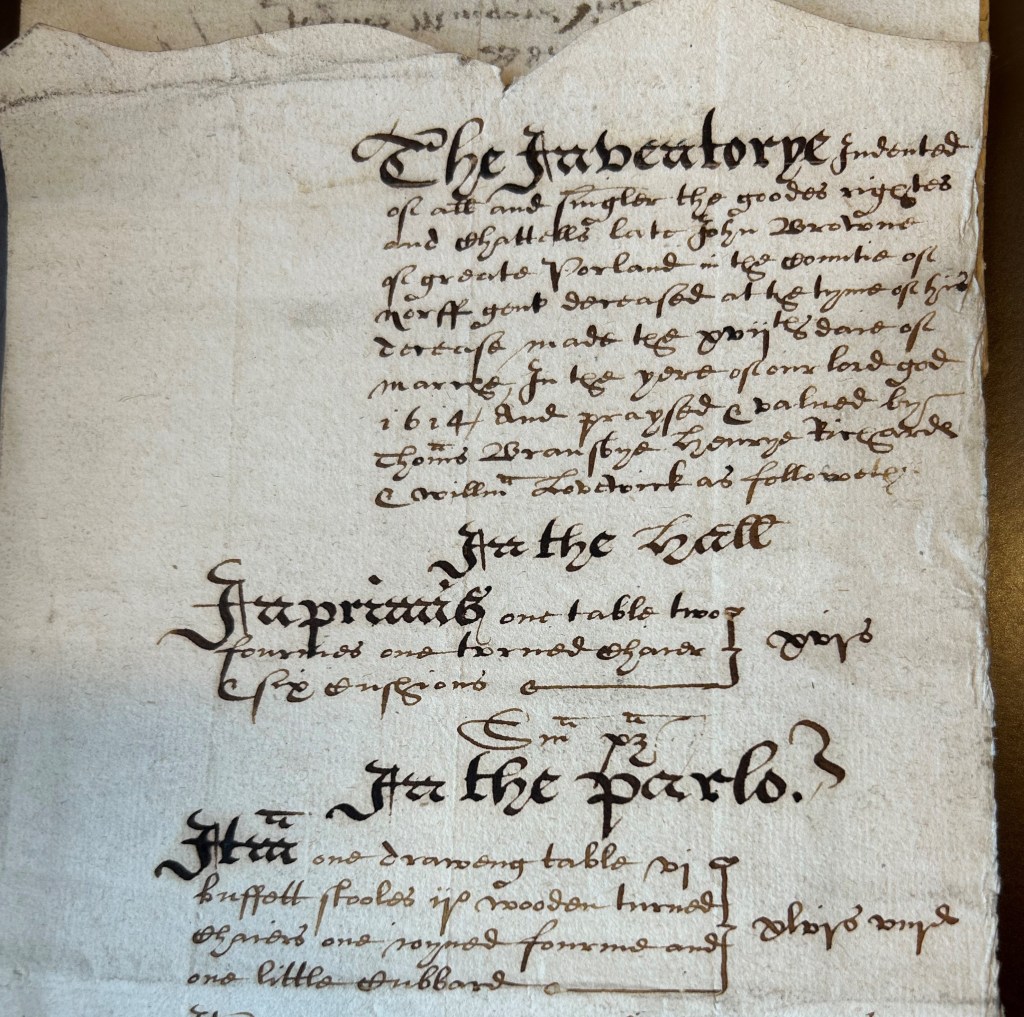 The Inventorye Indented
of all and singler the goodes rightes
and Chattells late John Browne
of greate Porland in the Countie of
Norff gent deceased at the tyme of his
decease made the xvijth daie of
marche, In the yere of our lord god
1614, And praysed & valued by
Thoms Bransbye Henrye Richards
& Willm Lovewick as followeth
In the Hall
Inprimis one table two
fourmes one turned Chaier
& six Cushions
xvjs
Sma pz
In the parlor
Itm one draweng table vj
buffett stooles ij wooden turned
Chaiers one ioyned fourme and
one little Cubbard
xlvjs viijd